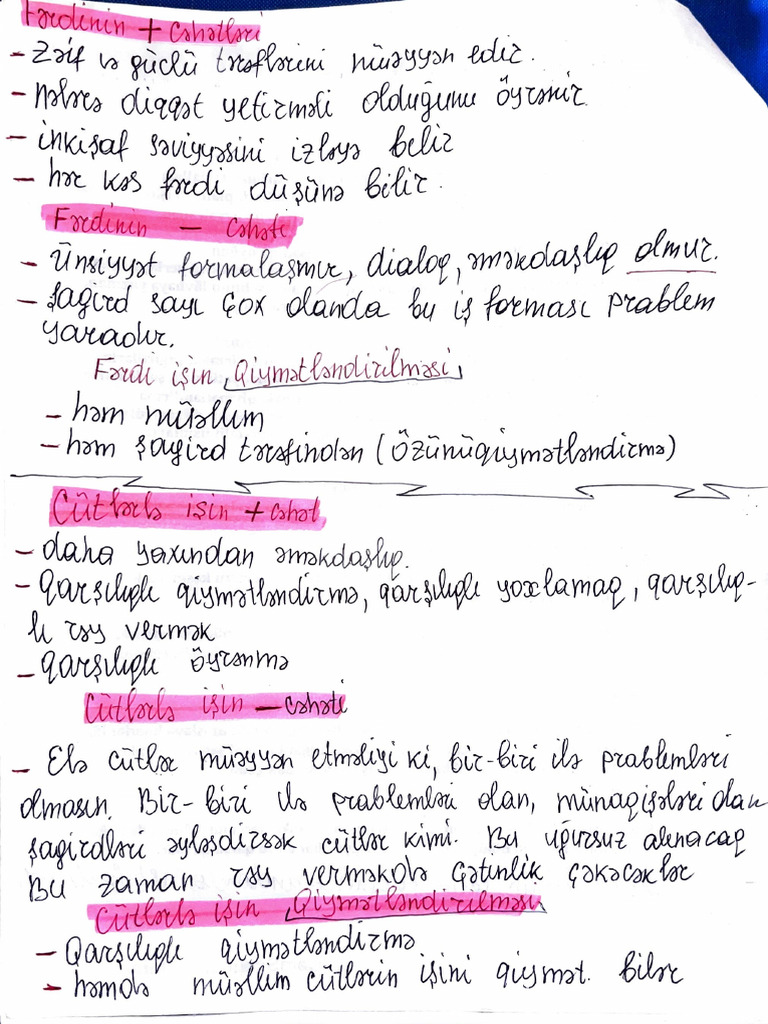 Fərdinin + cəhətləri
- Zəif və güclü tərəflərini müəyyən edir.
- Nələrə diqqət yetirməli olduğunu öyrənir.
- inkişaf səviyyəsini izləyə belir
- hər kəs fərdi düşünə bilir.
Fərdinin - cəhəti
- Ünsiyyət formalaşmır, dialoq, əməkdaşlıq olmur.
- Şagird sayı çox olanda bu iş forması problem
yaradır.
Fərdi işin Qiymətləndirilməsi
- həm müəllim
- həm şagird tərəfindən (özünüqiymətləndirmə)
Cütlərlə işin + cəhət
- daha yaxından əməkdaşlıq.
- Qarşılıqlı qiymətləndirmə, qarşılıqlı yoxlamaq, qarşılıq-
lı rəy vermək
- Qarşılıqlı öyrənmə
Cütlərlə işin - cəhəti
- Elə cütlər müəyyən etməliyi ki, bir-biri ilə problemləri
olmasın. Bir-biri ilə problemləri olan, münaqişələri olan
şagirdləri əyləşdirsək cütlər kimi. Bu uğursuz alınacaq
Bu zaman rəy verməkdə çətinlik çəkəcəklər
Cütlərlə işin Qiymətləndirilməsi
- Qarşılıqlı qiymətləndirmə.
- həmdə müəllim cütlərin işini qiymət. bilər